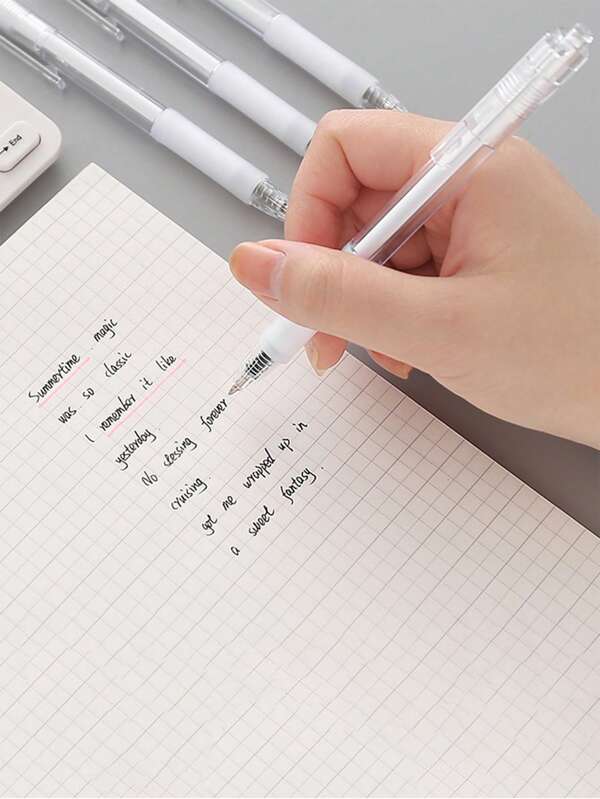 → End
Summertime. magic
was so classic
I remember it like
yesterday.
No stessing forever
cruising.
got me wrapped up in
a sweet fantasy.